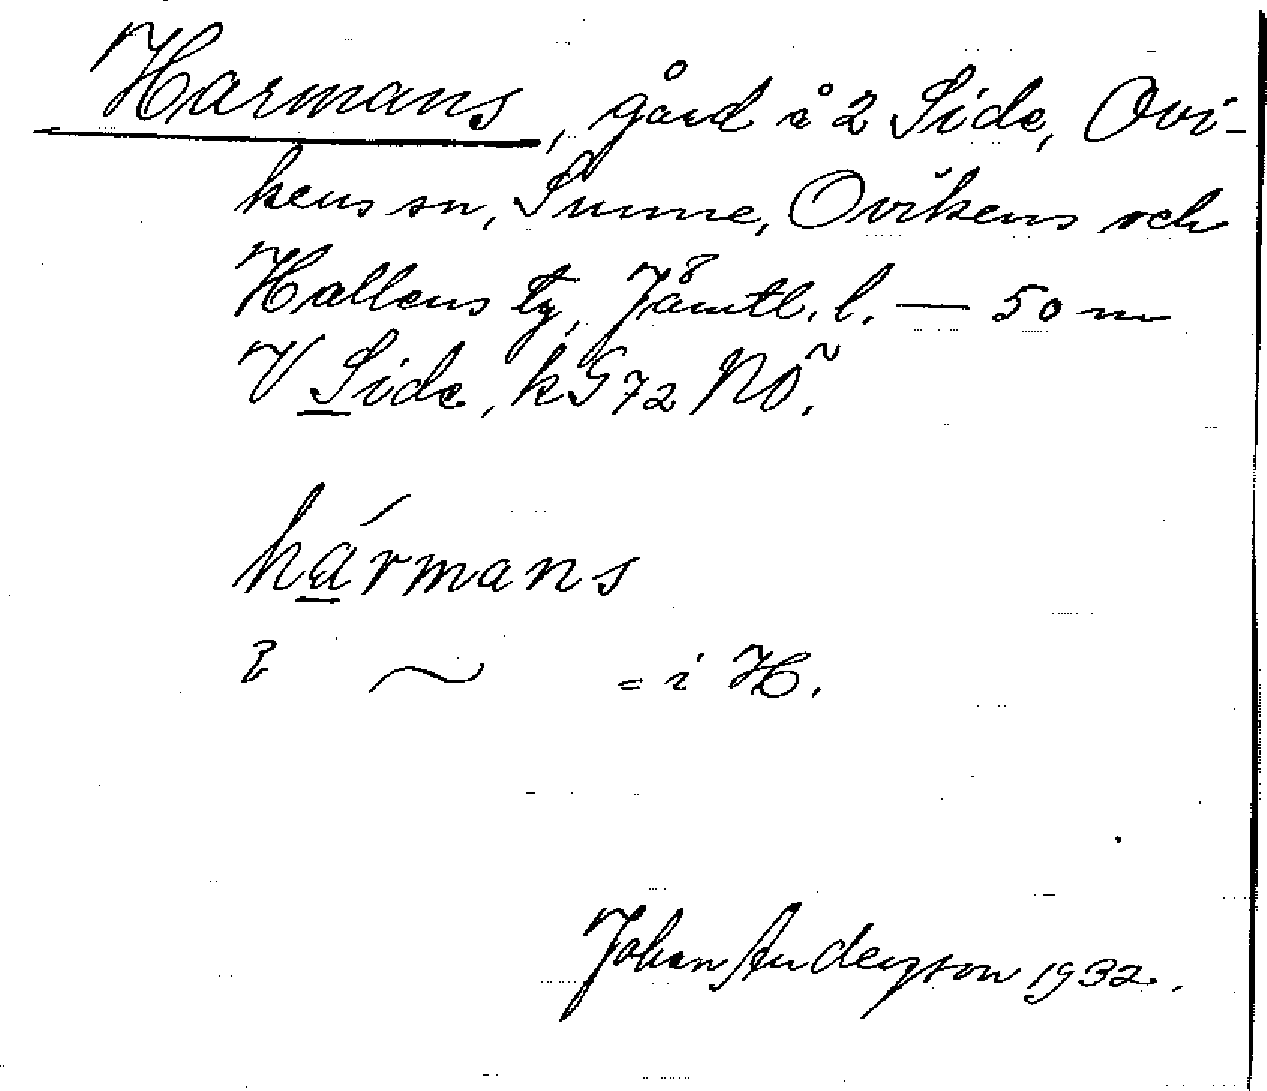 Harmans, gård å 2 Side, Ovi-
kens sn, Sunne, Ovikens och
Hallens tg, Jämtl. l. — 50 m
V Side, kG 72 NO.
hármans
~ = i H.
Johan Anderson 1932.